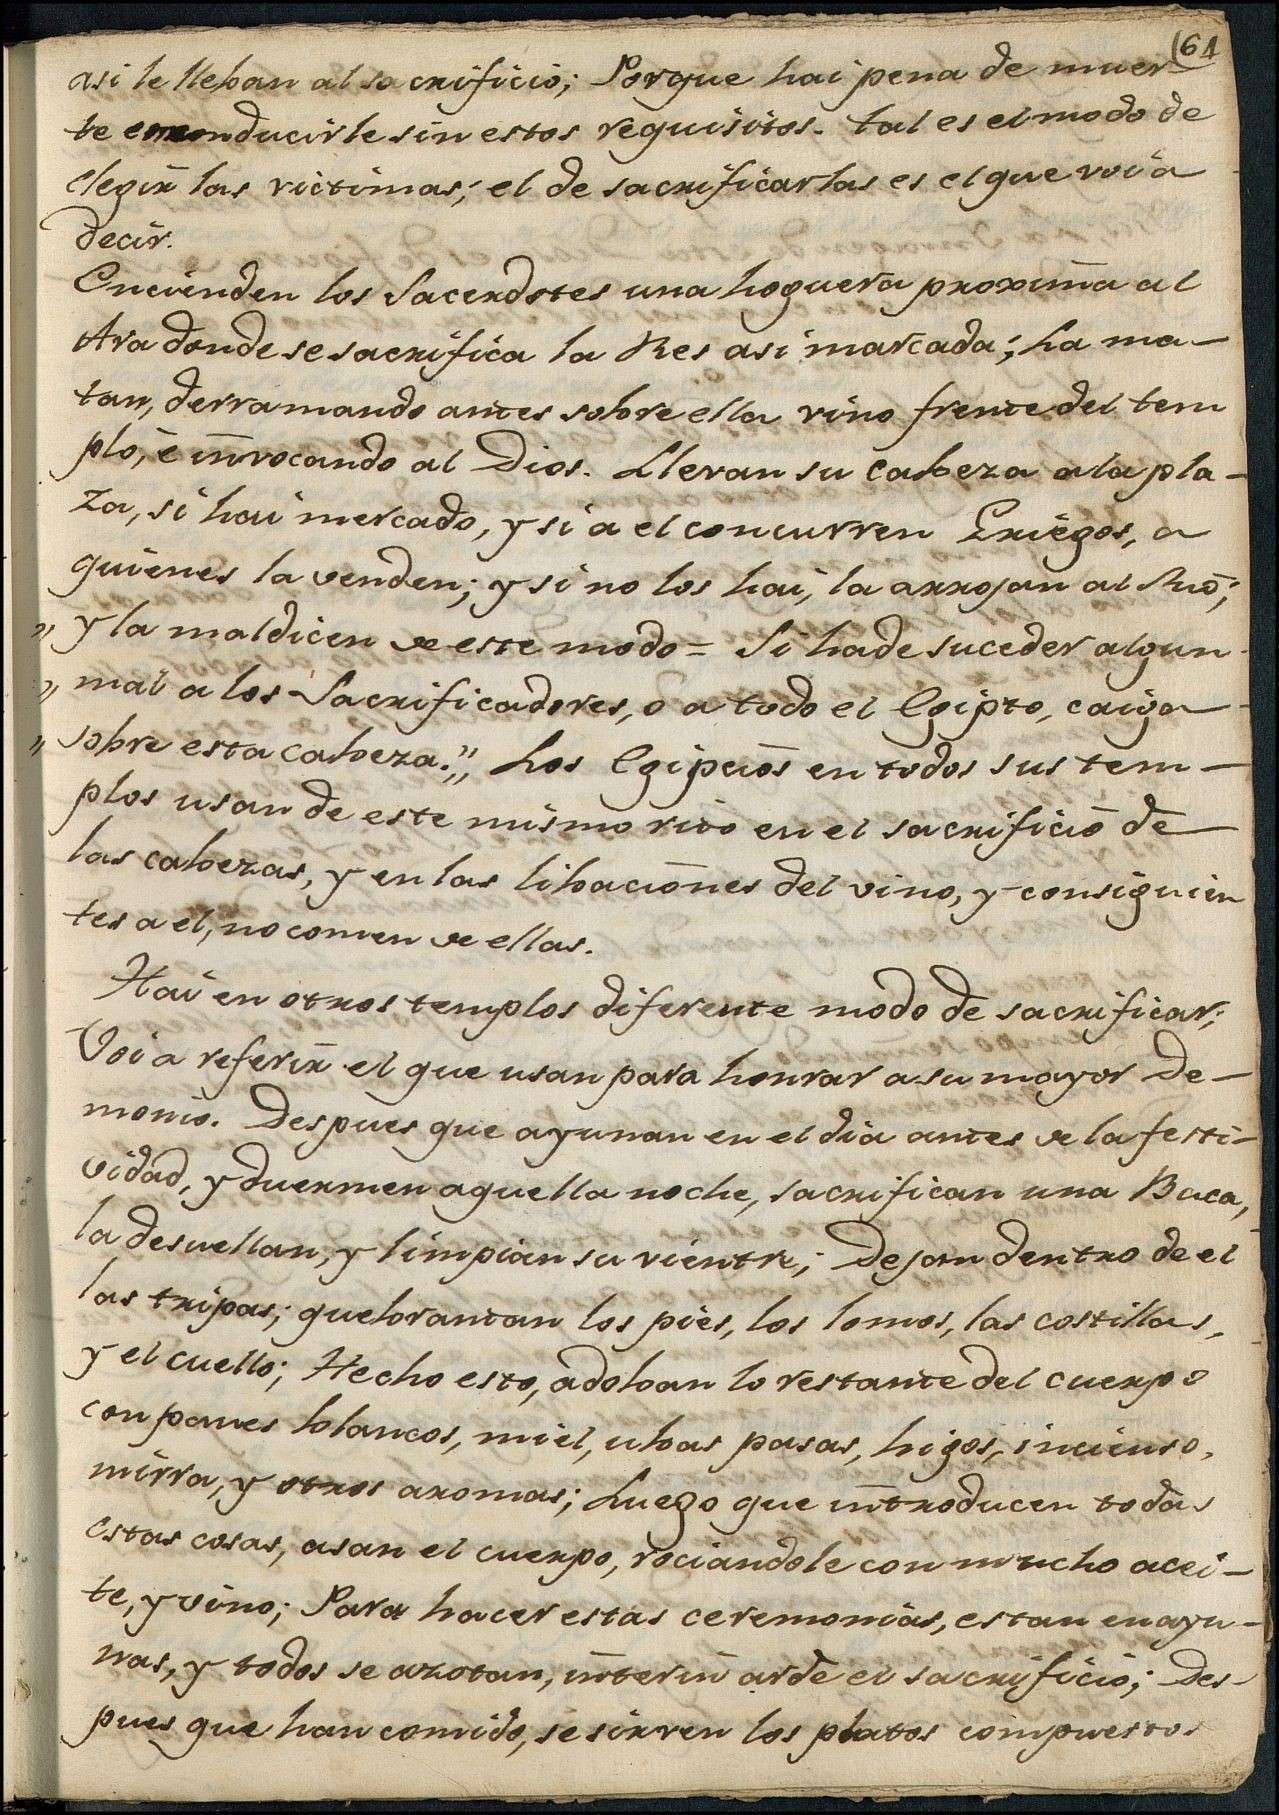 61
asi le lleban al sacrificio; Porque hai pena de muer-
te en conducirle sin estos requisitos. tal es el modo de
elegir las victimas; el de sacrificarlas es el que voi a
decir.
Encienden los Sacerdotes una hoguera proxima al
Ara donde se sacrifica la Res asi marcada; La ma-
tan, derramando antes sobre ella vino frente del tem
plo, è invocando al Dios. Llevan su cabeza a la pla-
za, si hai mercado, y si a el concurren Griegos, a
quienes la venden; y si no los hai, la arrojan al Rio;
" y la maldicen de este modo = Si ha de suceder algun
" mal a los Sacrificadores, o a todo el Egipto, caiga
" sobre esta cabeza." Los Egipcios en todos sus tem-
plos usan de este mismo rito en el sacrificio de
las cabezas, y en las libaciones del vino, y consiguien
tes a el, no comen de ellas.
Hai en otros templos diferente modo de sacrificar;
Voi a referir el que usan para honrar a su mayor De-
monio. Despues que ayunan en el dia antes de la festi-
vidad, y duermen aquella noche, sacrifican una Baca,
la desuellan, y limpian su vientre; Dejan dentro de el
las tripas; quebrantan los pies, los lomos, las costillas,
y el cuello; Hecho esto, adoban lo restante del cuerpo
con panes blancos, miel, ubas pasas, higos, incienso,
mirra, y otros aromas; Luego que introducen todas
estas cosas, asan el cuerpo, rociandole con mucho acei-
te, y vino; Para hacer estas ceremonias, estan en ayu-
nas, y todos se azotan, interin arde el sacrificio; Des-
pues que han comido, se sirven los platos compuestos